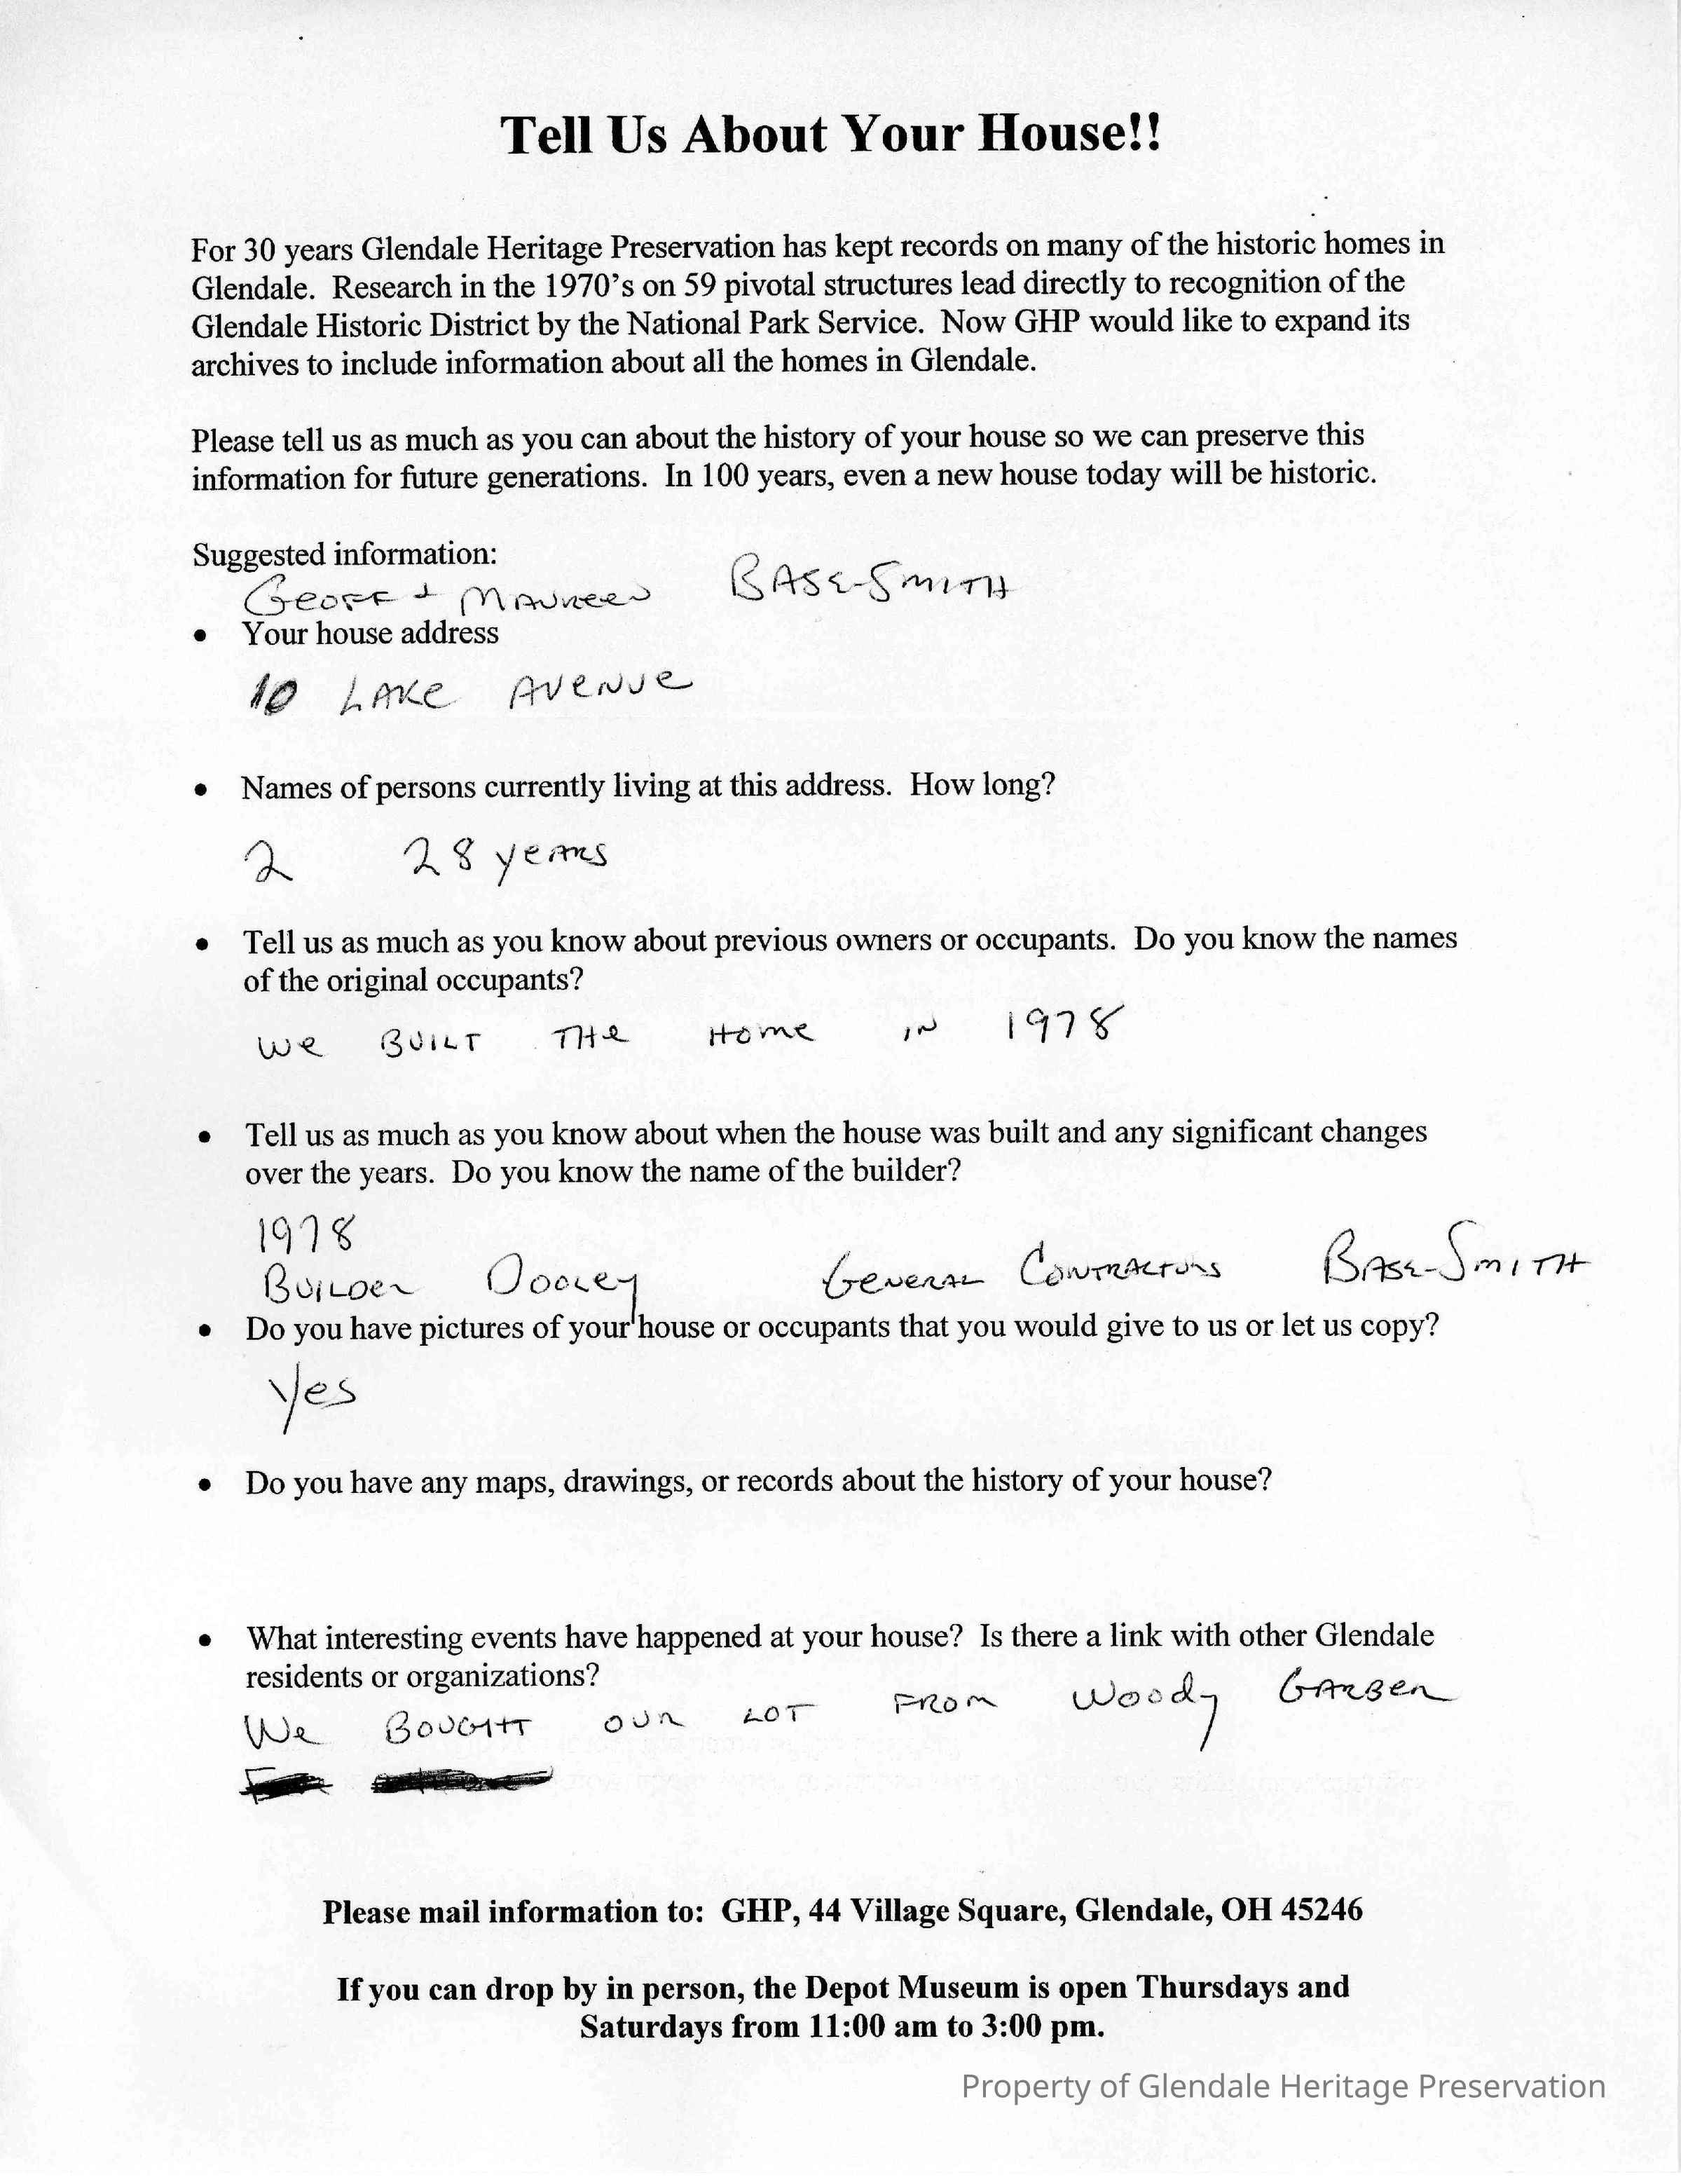 Tell Us About Your House!!
For 30 years Glendale Heritage Preservation has kept records on many of the historic homes in
Glendale. Research in the 1970's on 59 pivotal structures lead directly to recognition of the
Glendale Historic District by the National Park Service. Now GHP would like to expand its
archives to include information about all the homes in Glendale.
Please tell us as much as you can about the history of your house so we can preserve this
information for future generations. In 100 years, even a new house today will be historic.
Suggested information:
Geoff + Maureen BASE-SMITH
• Your house address
10 LAKE AVENUE
• Names of persons currently living at this address. How long?
2 28 years
• Tell us as much as you know about previous owners or occupants. Do you know the names
of the original occupants?
We BUILT THE Home IN 1978
• Tell us as much as you know about when the house was built and any significant changes
over the years. Do you know the name of the builder?
1978
BUILDER DOOLEY GENERAL CONTRACTORS BASE-SMITH
• Do you have pictures of your house or occupants that you would give to us or let us copy?
Yes
• Do you have any maps, drawings, or records about the history of your house?
• What interesting events have happened at your house? Is there a link with other Glendale
residents or organizations?
We BOUGHT OUR LOT FROM Woody GARBER
Please mail information to: GHP, 44 Village Square, Glendale, OH 45246
If you can drop by in person, the Depot Museum is open Thursdays and
Saturdays from 11:00 am to 3:00 pm.
Property of Glendale Heritage Preservation